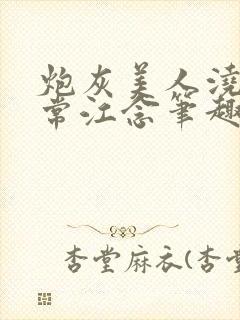 炮灰美人浇
常江念笔趣
杏堂麻衣(杏堂